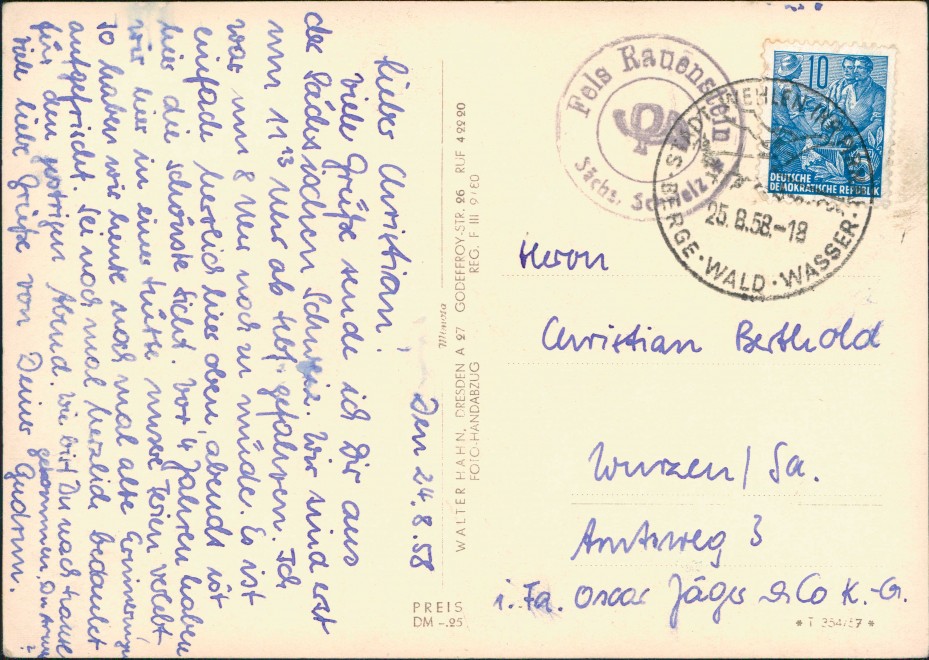 Den 24.8.58
Lieber Christian!
Viele Grüße sende ich Dir aus
der Sächsischen Schweiz. Wir sind erst
um 11 13 Uhr ab Hbf. gefahren. Ich
war um 8 Uhr noch zu müde. Es ist
einfach herrlich hier oben, abends ist
hier die schönste Sicht. Vor 4 Jahren haben
wir hier in einer Hütte unsre Ferien verlebt
so haben wir heute noch mal alte Erinnerungen
aufgefrischt. Sei noch mal herzlich bedankt
für den gestrigen Abend. Wie bist Du nach Hause
gekommen, Du Armer?
Viele liebe Grüße von Deiner
Gudrun.
Mimosa
WALTER HAHN, DRESDEN A 27 GODEFFROY-STR. 26 RUF 42220
FOTO-HANDABZUG REG. F III 9/80
PREIS
DM -.25
Fels Rauenstein
Sächs. Schweiz
10
DEUTSCHE
DEMOKRATISCHE REPUBLIK
STADT WEHLEN
25.8.58.-18
BERGE · WALD · WASSER
Herrn
Christian Berthold
Wurzen / Sa.
Amtsweg 3
i. Fa. Oscar Jäger & Co K.-G.
* T 354/57 *